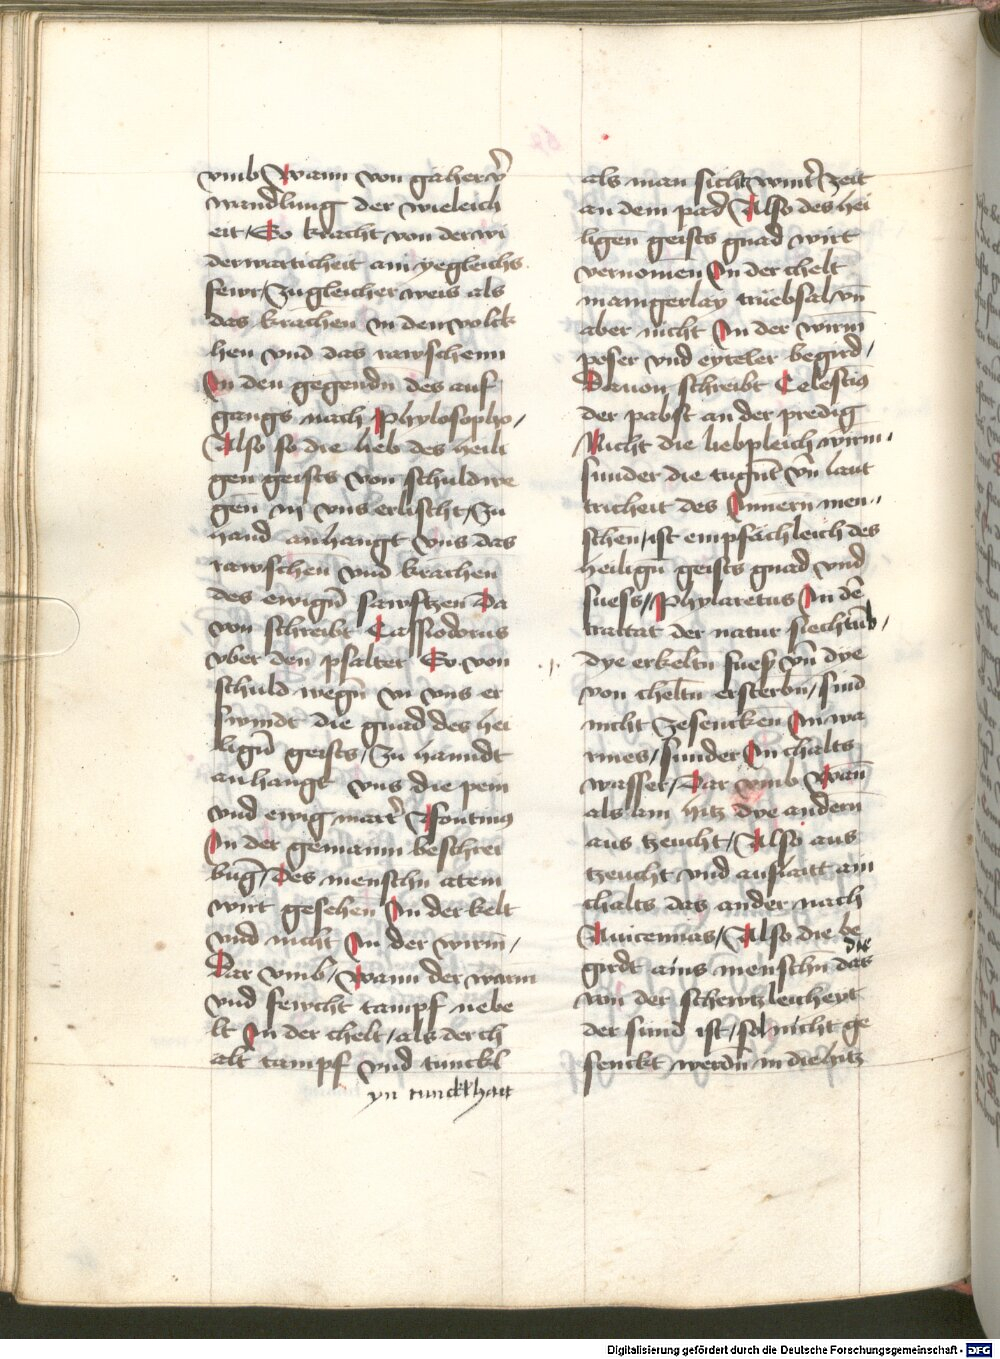 vmb Wann von gaher v̄
wandlung der wieleich
eit / So kracht von der wi
derwarticheit aim yegleichs
fewr / Zu gleicher weis als
das krachen in den wolck
hen vnd das rawschenn
In den gegendn̄ des auf
gangs nach Phylosopho /
Also so die lieb des heili
gen geists von schuld we
gen̄ in vns erlischt / Zu
hand anhangt vns das
rawschen vnd krachen
des ewign̄ sawftzen Da
von schreibt Cassiodorus
vber den psalter So von
schuld wegn̄ in vns er
swindt die gnad des hei
lign̄ geists / Zu hanndt
anhangt vns die pein
vnd ewig marter
In der gemainn beschrei
būg / Des menschn̄ atem
wirt gesehen In der kelt
vnd nicht In der wirm̄ /
Dar vmb / Wann der warm
vnd fewcht tampf nebe
lt In der chelt / als der ch
alt tampf vnd tunckl
yn tunckhait
als man sicht wintt̄ zeit
an dem pad Also des hei
ligen geists gnad wirt
vernomen In der chelt
mamgerlay trüebsal vn̄
aber nicht In der wirm̄
poser vnd eyteler begird /
Dauon schreibt Celestin9
der pabst an der predig
Nicht die liebpleich wirm
sunder die tugn̄t vn̄ laut
tricheit des Innern̄ men
schen / ist empfächleich des
heilign̄ geists gnad vnd
suess / Phylaretus In dē
traltat der natur siechtūb /
Dye erkeltn̄ suesz vn̄ dye
von cheltn̄ ersterbn̄ / sind
nicht Zesencken In wa
rmes / sunder In chalts
wasser / Dar vmb Wan̄
als ain hitz dye andern̄
aus tzeucht / Also aus
tzeucht vnd aufsaitt ain
chalts das ander nach
Auicennas / Also die be
die
girdt ains menschn̄ das
von der schewtzleicheyt
der sünd ist / sol nicht ge
senckt werdn̄ in die hitz
Digitalisierung gefördert durch die Deutsche Forschungsgemeinschaft - DFG